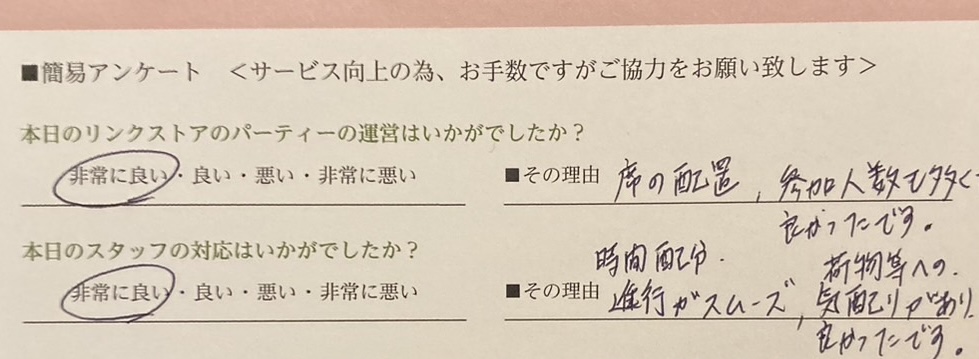 ■簡易アンケート <サービス向上の為、お手数ですがご協力をお願い致します>
本日のリンクストアのパーティーの運営はいかがでしたか?
非常に良い・良い・悪い・非常に悪い ■その理由 席の配置、参加人数も多く
良かったです。
本日のスタッフの対応はいかがでしたか?
非常に良い・良い・悪い・非常に悪い ■その理由 時間配分.
進行がスムーズ、荷物等への.
気配りがあり
良かったです。